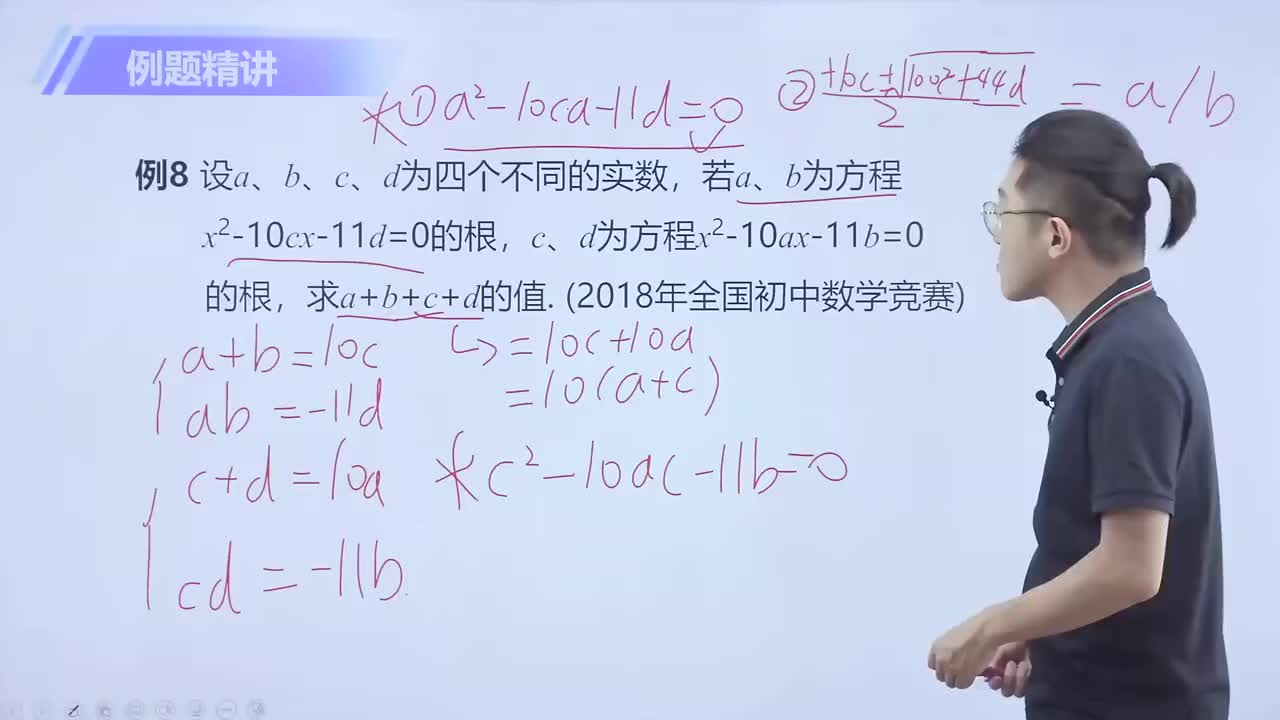 例题精讲
*①a²-10ca-11d=0 ②(+10c±√(100²+44d))/2 = a/b
例8 设a、b、c、d为四个不同的实数，若a、b为方程
x²-10cx-11d=0的根，c、d为方程x²-10ax-11b=0
的根，求a+b+c+d的值. (2018年全国初中数学竞赛)
a+b=10c ↳=10c+10a
ab=-11d =10(a+c)
c+d=10a *c²-10ac-11b=0
cd=-11b